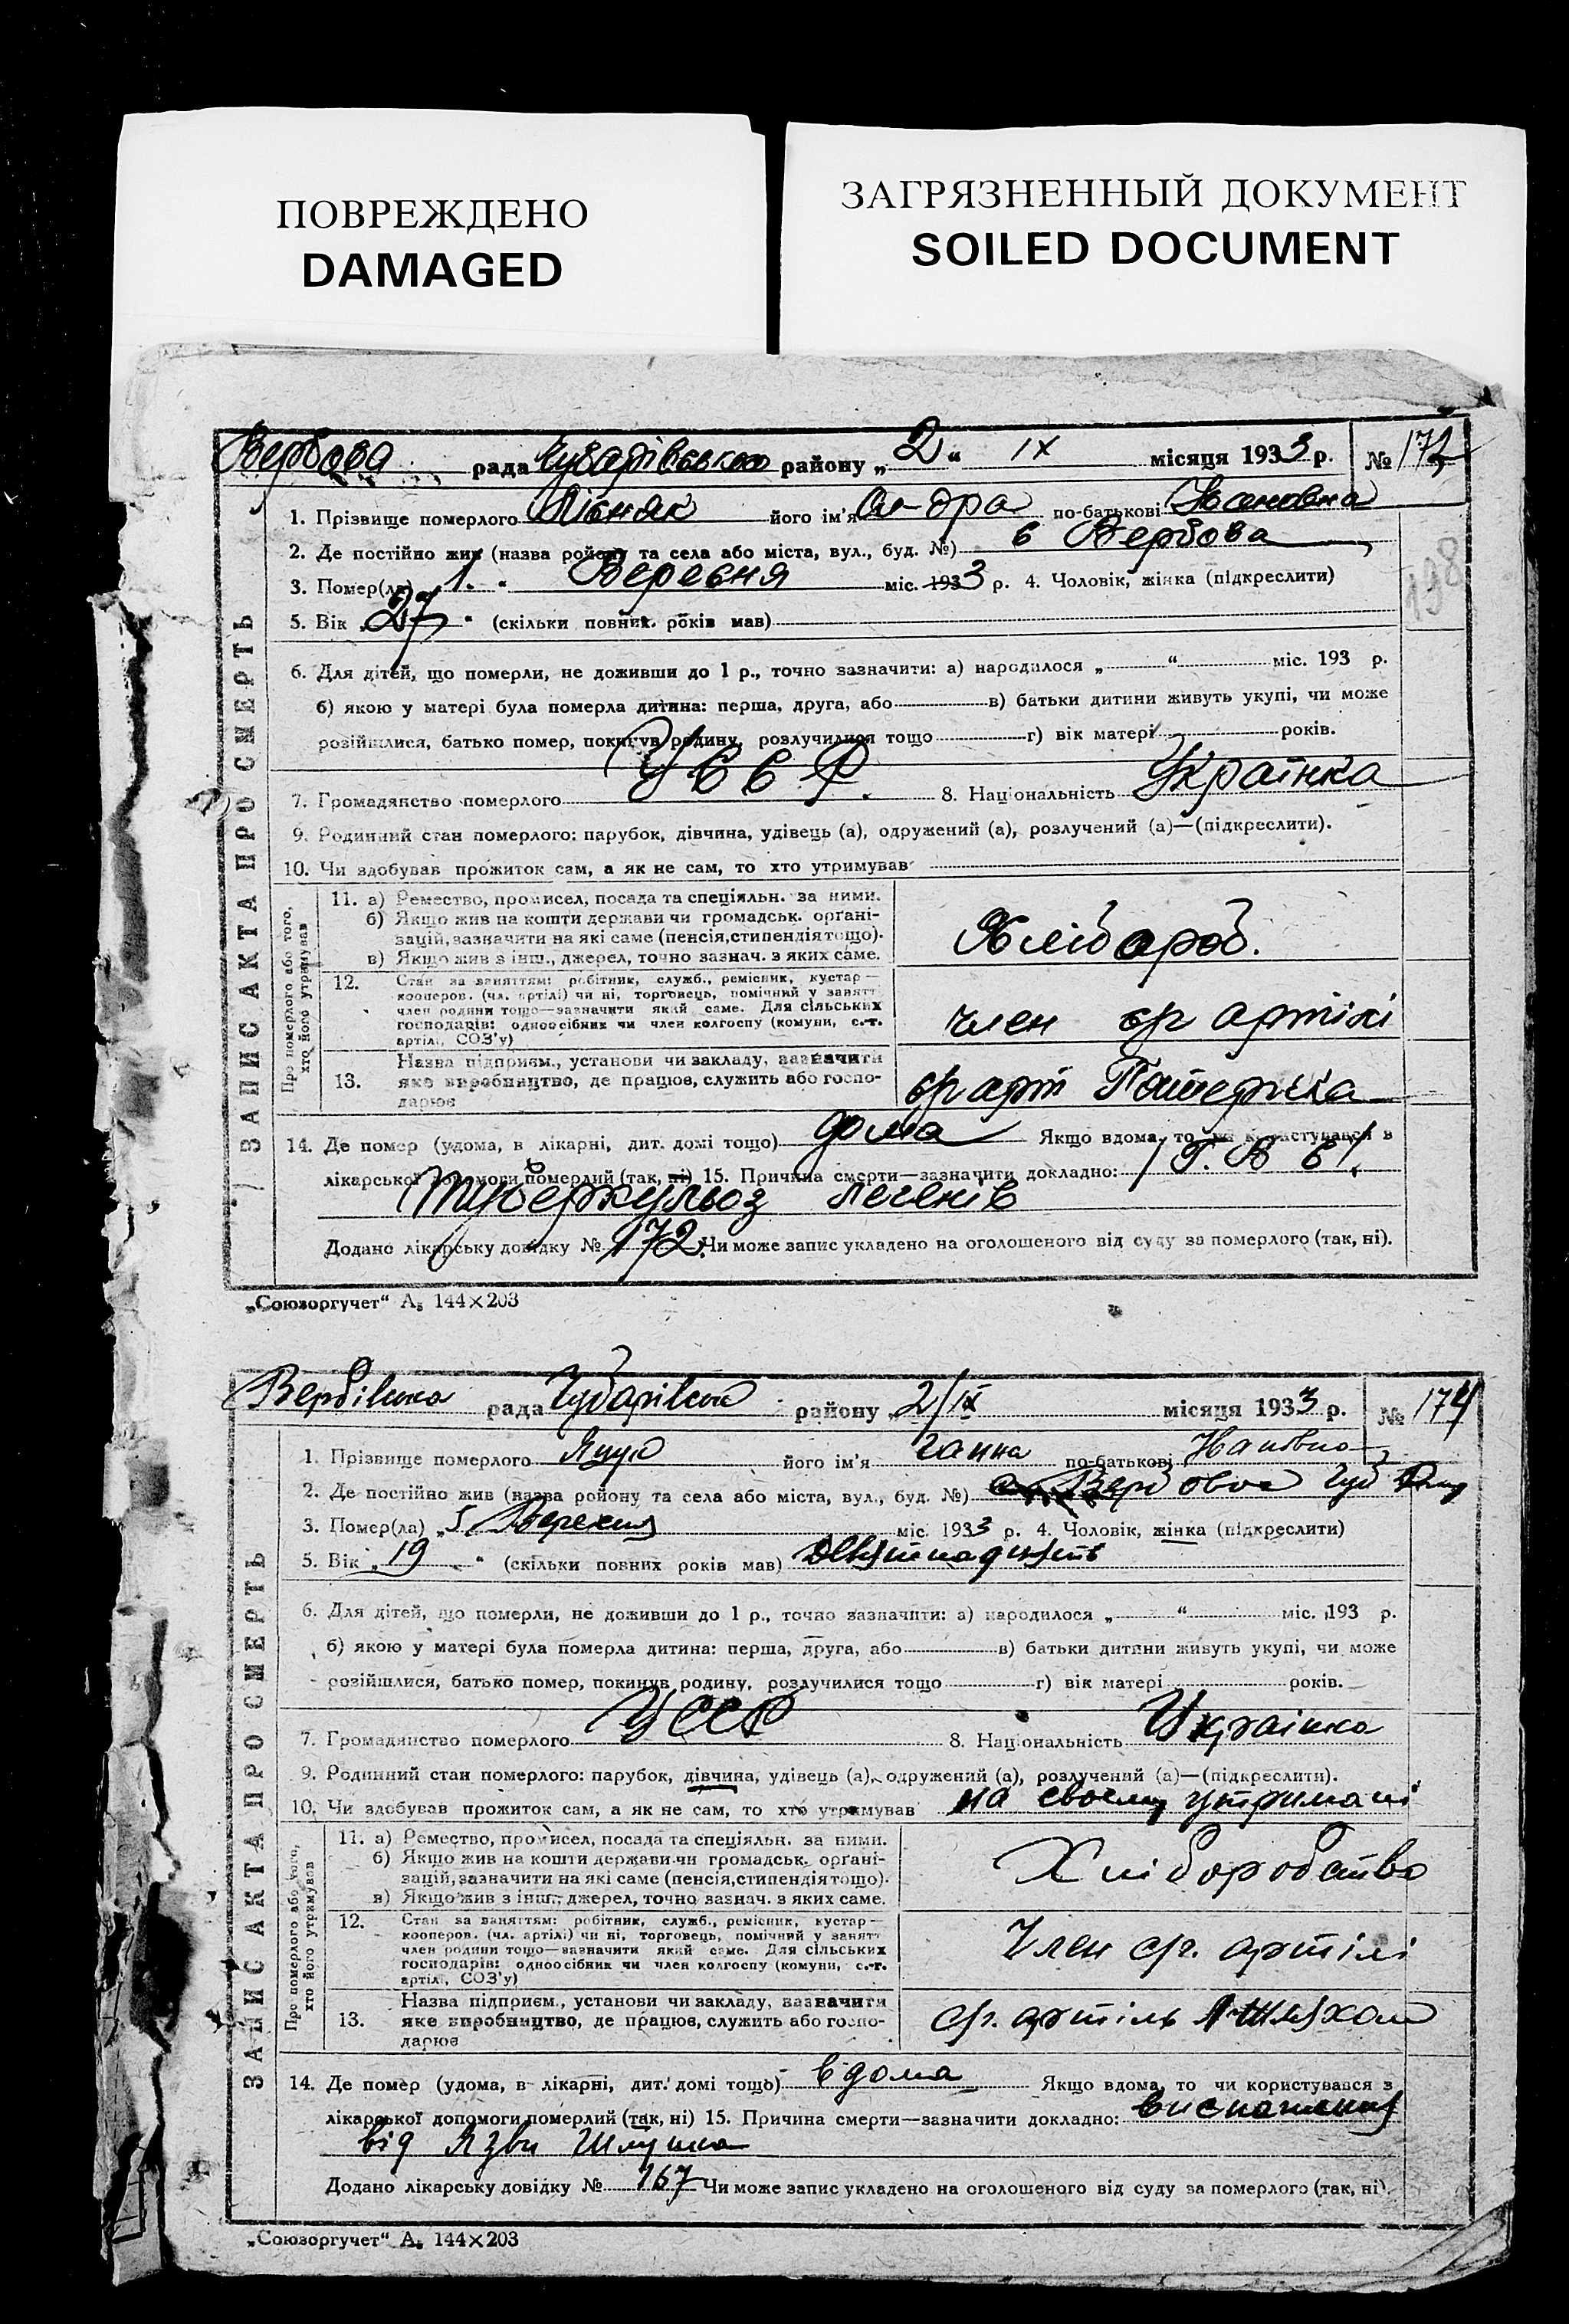 ПОВРЕЖДЕНО
DAMAGED
ЗАГРЯЗНЕННЫЙ ДОКУМЕНТ
SOILED DOCUMENT
Вербова рада Чубарівського району „2“ IX місяця 1933 р. № 172
1. Прізвище померлого його ім'я по-батькові
2. Де постійно жив (назва району та села або міста, вул., буд. №) с Вербова
3. Помер(ла) „1“ Вересня міс. 1933 р. 4. Чоловік, жінка (підкреслити)
5. Вік „27“ (скільки повних років мав)
6. Для дітей, що померли, не доживши до 1 р., точно зазначити: а) народилося „ “ міс. 193 р.
б) якою у матері була померла дитина: перша, друга, або в) батьки дитини живуть укупі, чи може
розійшлися, батько помер, покинув родину, розлучилися тощо г) вік матері років.
7. Громадянство померлого УССР. 8. Національність Українка
9. Родинний стан померлого: парубок, дівчина, удівець (а), одружений (а), розлучений (а)—(підкреслити).
10. Чи здобував прожиток сам, а як не сам, то хто утримував
ЗАПИС АКТА ПРО СМЕРТЬ
Про померлого або того,
хто його утримував
11. а) Ремество, промисел, посада та спеціяльн. за ними.
б) Якщо жив на кошти держави чи громадськ. орґані-
зацій, зазначити на які саме (пенсія, стипендія тощо).
в) Якщо жив з інш., джерел, точно зазнач. з яких саме.
Хлібороб.
12. Стан за заняттям: робітник, служб., ремісник, кустар—
кооперов. (чл. артілі) чи ні, торговець, помічний у занятт
член родини тощо—зазначити який саме. Для сільських
господарів: одноосібник чи член колгоспу (комуни, с.-г.
артілі, СОЗ'у)
член с/г артілі
13. Назва підприєм., установи чи закладу, зазначити
яке виробництво, де працює, служить або госпо-
дарює
с/г арт
14. Де помер (удома, в лікарні, дит. домі тощо) дома Якщо вдома, то чи користувався в
лікарської допомоги померлий (так, ні) 15. Причина смерти—зазначити докладно:
туберкульоз легенів
Додано лікарську довідку № 172. Чи може запис укладено на оголошеного від суду за померлого (так, ні).
„Союзоргучет“ А5 144×203
198
Вербівська рада Чубарівськ району „2/IX місяця 1933 р. № 174
1. Прізвище померлого його ім'я Ганна по-батькові
2. Де постійно жив (назва району та села або міста, вул., буд. №) Вербова Чуб
3. Помер(ла) „5 Вересня міс. 1933 р. 4. Чоловік, жінка (підкреслити)
5. Вік „19“ (скільки повних років мав) Девятнадцять
6. Для дітей, що померли, не доживши до 1 р., точно зазначити: а) народилося „ “ міс. 193 р.
б) якою у матері була померла дитина: перша, друга, або в) батьки дитини живуть укупі, чи може
розійшлися, батько помер, покинув родину, розлучилися тощо г) вік матері років.
7. Громадянство померлого УССР 8. Національність Українка
9. Родинний стан померлого: парубок, дівчина, удівець (а), одружений (а), розлучений (а)—(підкреслити).
10. Чи здобував прожиток сам, а як не сам, то хто утримував на своєму утримані
ЗАПИС АКТА ПРО СМЕРТЬ
Про померлого або того,
хто його утримував
11. а) Ремество, промисел, посада та спеціяльн. за ними.
б) Якщо жив на кошти держави чи громадськ. орґані-
зацій, зазначити на які саме (пенсія, стипендія тощо).
в) Якщо жив з інш., джерел, точно зазнач. з яких саме.
Хліборобство
12. Стан за заняттям: робітник, служб., ремісник, кустар—
кооперов. (чл. артілі) чи ні, торговець, помічний у занятт
член родини тощо—зазначити який саме. Для сільських
господарів: одноосібник чи член колгоспу (комуни, с.-г.
артілі, СОЗ'у)
Член с/г. артілі
13. Назва підприєм., установи чи закладу, зазначити
яке виробництво, де працює, служить або госпо-
дарює
с/г. артіль
14. Де помер (удома, в лікарні, дит. домі тощо) вдома Якщо вдома, то чи користувався з
лікарської допомоги померлий (так, ні) 15. Причина смерти—зазначити докладно: виснаження
від язви шлунка
Додано лікарську довідку № 167 Чи може запис укладено на оголошеного від суду за померлого (так, ні).
„Союзоргучет“ А5 144×203